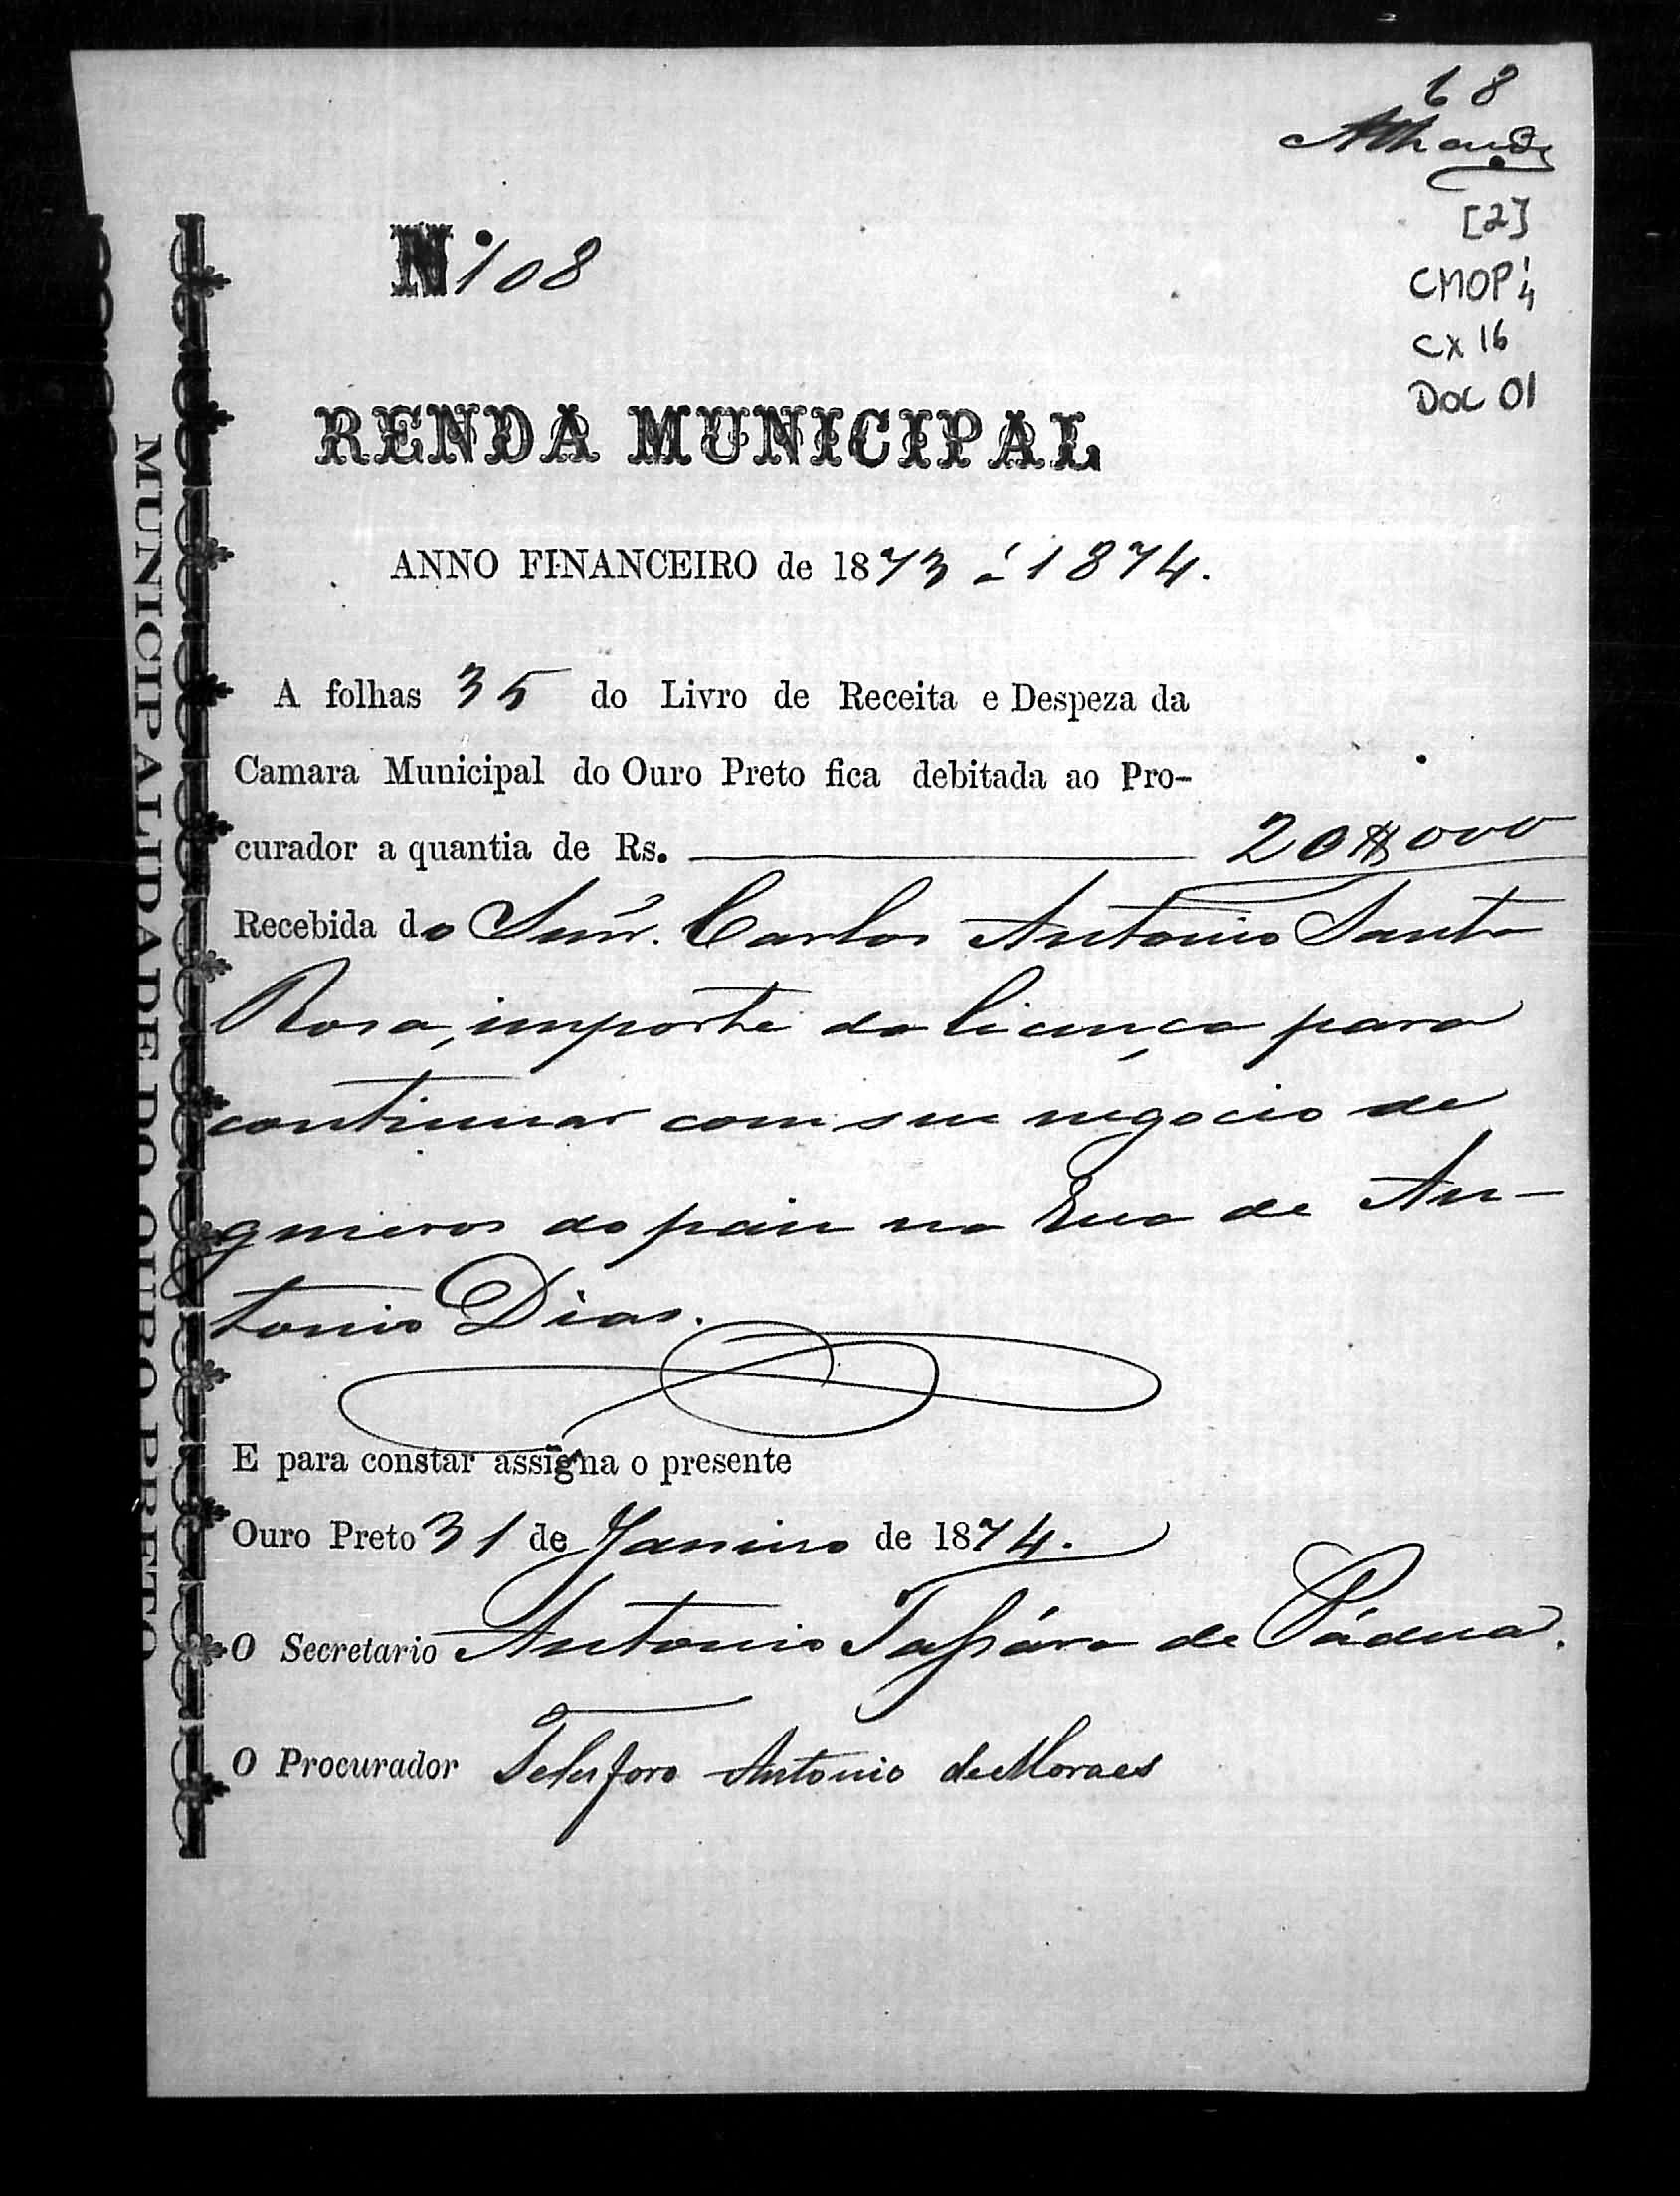 68
[2]
CMOP 1/4
CX 16
DOC 01
Nº 108
RENDA MUNICIPAL
ANNO FINANCEIRO de 1873 á 1874.
A folhas 35 do Livro de Receita e Despeza da
Camara Municipal do Ouro Preto fica debitada ao Pro-
curador a quantia de Rs. 20$000
Recebida do Snr. Carlos Antonio Santa
Rosa, importe da licença para
continuar com seu negocio de
generos do paiz na Rua de An-
tonio Dias.
E para constar assigna o presente
Ouro Preto 31 de Janeiro de 1874.
O Secretario Antonio de Pádua.
O Procurador Telesforo Antonio de Moraes
MUNICIPALIDADE DO OURO PRETO